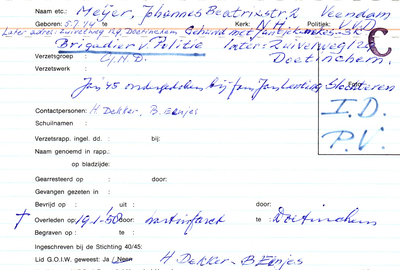 Naam etc.: Meijer, Johannes Beatrixstr. 2 Veendam
Geboren: 5.7.14 te Kerk: N.H. Politiek:
Later adres: Zuivelweg 129, Doetinchem Gehuwd met
Brigadier v. Politie later: Zuivelweg 129
Verzetsgroep : C.I.M.D. Doetinchem.
Verzetswerk :
Jan '45 ondergedoken bij fam.
Contactpersonen: H. Dekker, B. Eenjes
Schuilnamen :
Verzetsrapp. ingel. dd. : bij:
Naam genoemd in rapp.:
op bladzijde:
Gearresteerd op : door:
Gevangen gezeten in :
Bevrijd op : uit : door:
† Overleden op 19.1.50 door: hartinfarct te : Doetinchem
Begraven op : te :
Ingeschreven bij de Stichting 40/45:
Lid G.O.I.W. geweest: Ja / Neen H. Dekker - B. Eenjes
C
I.D.
P.V.